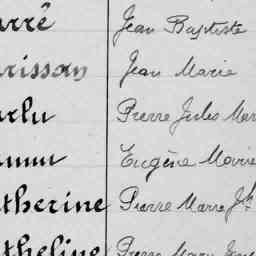 arrê Jean Baptiste
risson Jean Marie
arlu Pierre Jules Mar
Eugène Marie
therine Pierre Marie Jh
theline Pierre Marie